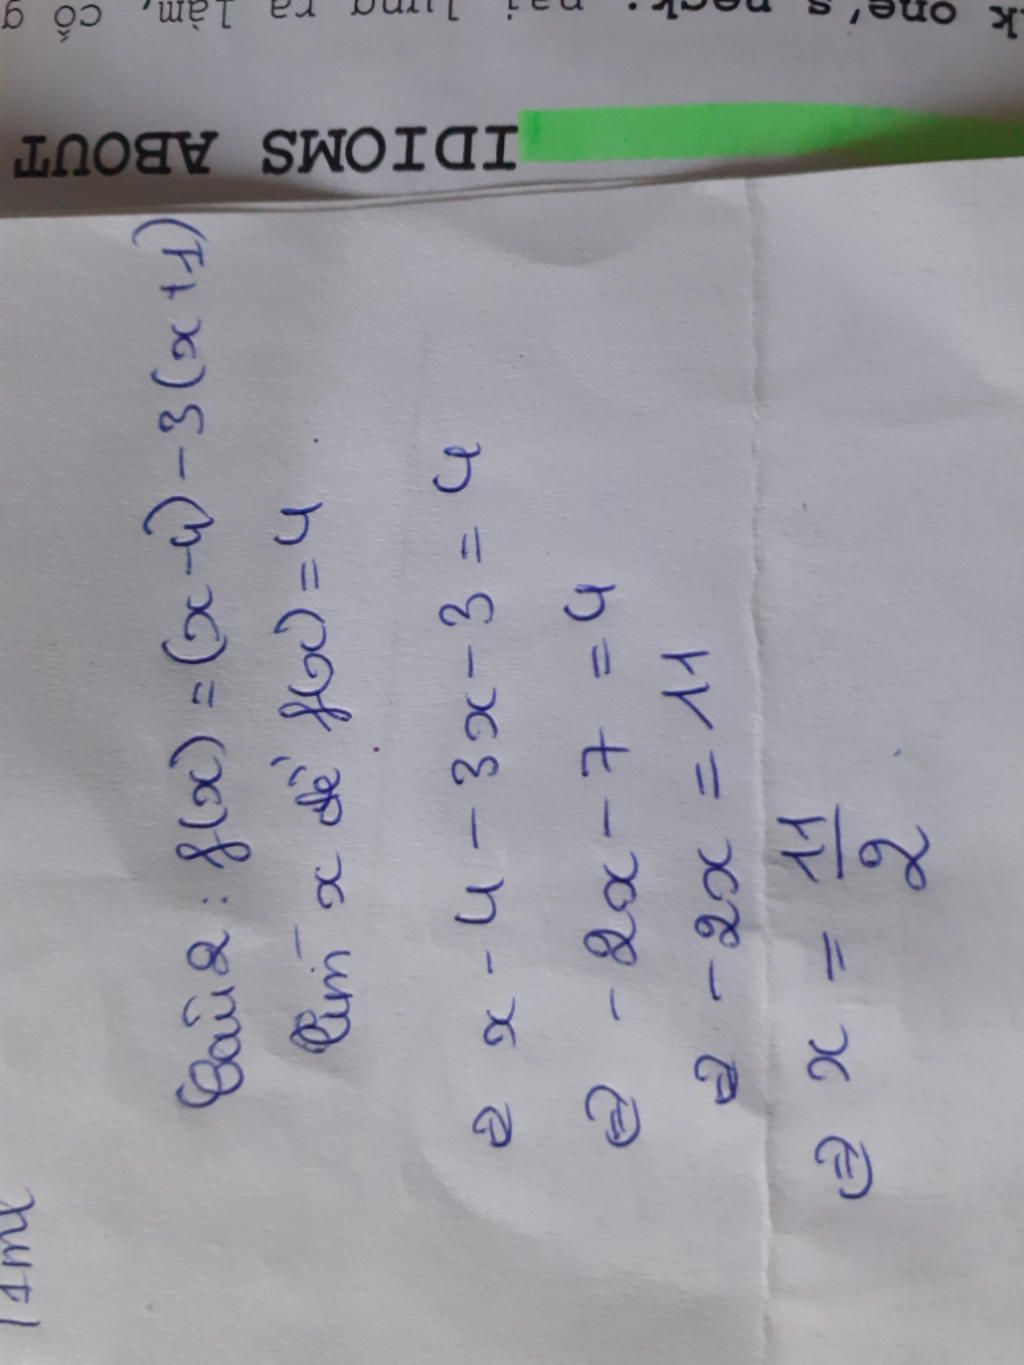 k one's neck: oai lưng ra làm, cố g
IDIOMS ABOUT
Câu 2: f(x) = (x-4) - 3(x+1)
Tìm x để f(x) = 4
⇔ x - 4 - 3x - 3 = 4
⇔ - 2x - 7 = 4
⇔ - 2x = 11
⇔ x = 11/2